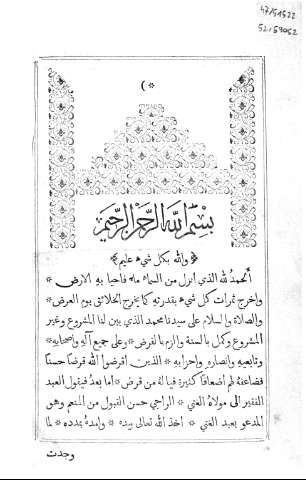 47/51522
52/59062
بسم الله الرحمن الرحيم
﴿ والله بكل شيء عليم ﴾
الحمد لله الذي انزل من السماء ماء فاحيا به الارض *
واخرج ثمرات كل شيء بقدرته كما يخرج الخلائق يوم العرض *
والصلاة والسلام على سيدنا محمد الذي بين لنا المشروع وغير
المشروع وكمل بالسنة والزم بالفرض * وعلى جميع آله واصحابه *
وتابعيه وانصاره واحزابه * الذين اقرضوا الله قرضاً حسناً
فضاعفه لهم اضعافاً كثيرة فيا له من قرض * اما بعد فيقول العبد
الفقير الى مولاه الغني * الراجي حسن القبول من المنعم وهو
المدعو بعبد الغني * اخذ الله تعالى بيده * وامده بمدده * لما
وجدت